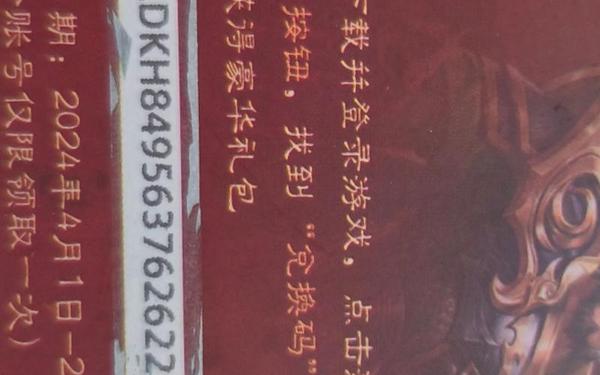 下载并登录游戏，点击
按钮，找到“兑换码”
获得豪华礼包
DKH8495637626227
期：2024年4月1日-2
账号仅限领取一次）